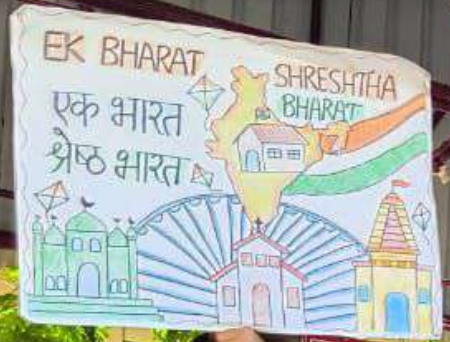 EK BHARAT
SHRESHTHA
BHARAT
एक भारत
श्रेष्ठ भारत